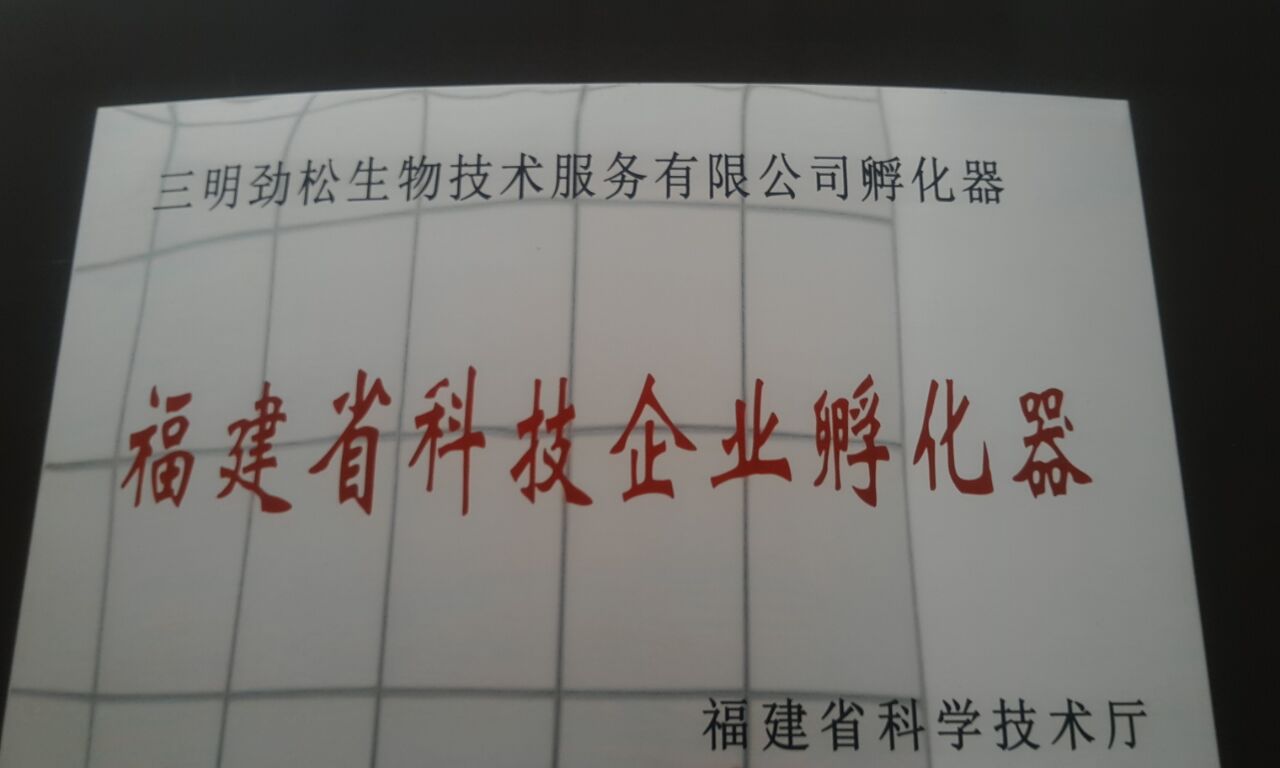 三明劲松生物技术服务有限公司孵化器
福建省科技企业孵化器
福建省科学技术厅